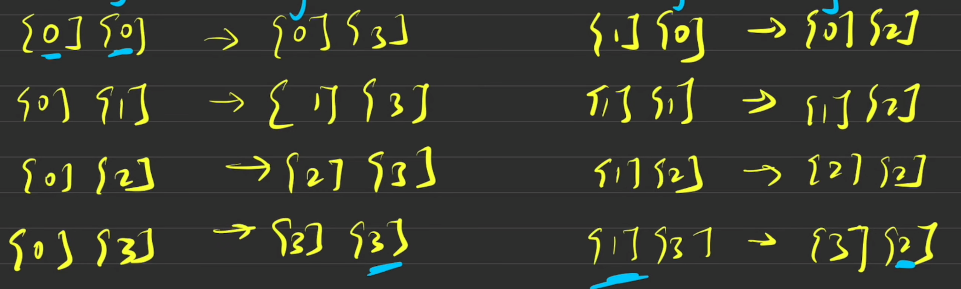 [0] [0] → [0] [3]
[0] [1] → [1] [3]
[0] [2] → [2] [3]
[0] [3] → [3] [3]
[1] [0] → [0] [2]
[1] [1] → [1] [2]
[1] [2] → [2] [2]
[1] [3] → [3] [2]